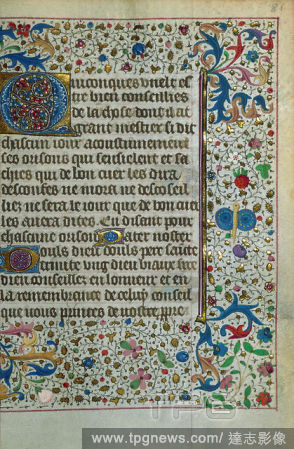 Quiconques vuelt es
tre bien conseillies
de la chose dont il a
grant mestier si dit
chascun iour acoustumeement
ses orisons qui sensieuent et sa
chies qui de bon cuer les dira
desconfes ne mora ne descoseil
liez ne sera le iour que de bon cuer
les auera dites. En disant pour
chascune orison Pater noster
Douls dieu douls pere sainte
trinite ung dieu biaux sire
dieu conseillez en lonneur et en
la remembrance de celup conseil
que vous prinstes de nostre pre
www.tpgnews.com/ 達志影像